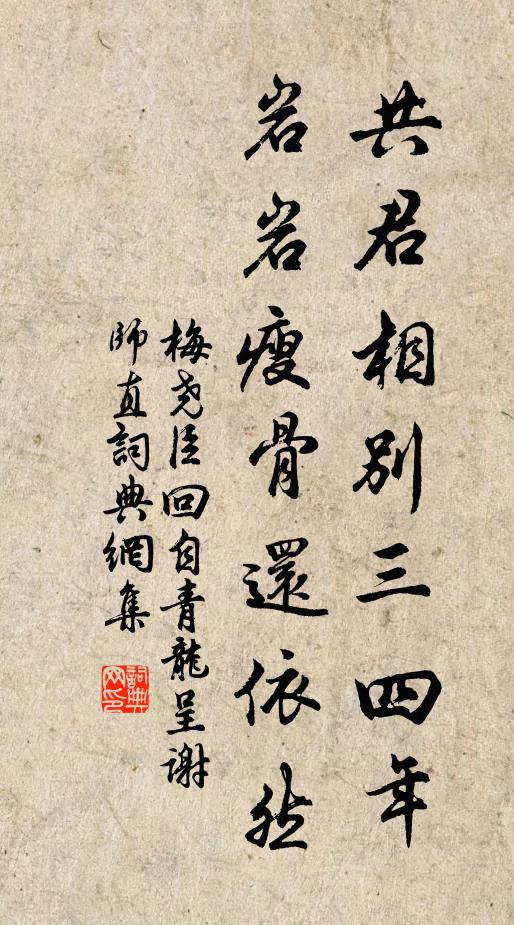 共君相别三四年
岩岩瘦骨還依然
梅尧臣回自青龍呈谢
師直詞典網集
詞典网印